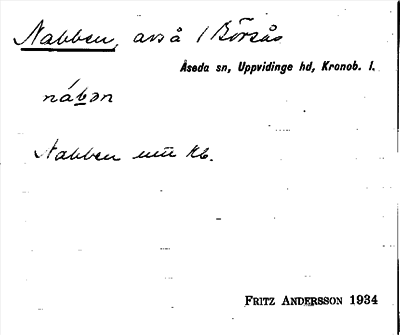 Nabben, avs å 1 Börsås
Åseda sn, Uppvidinge hd, Kronob. l.
nábən
Nabben Kb.
FRITZ ANDERSSON 1934